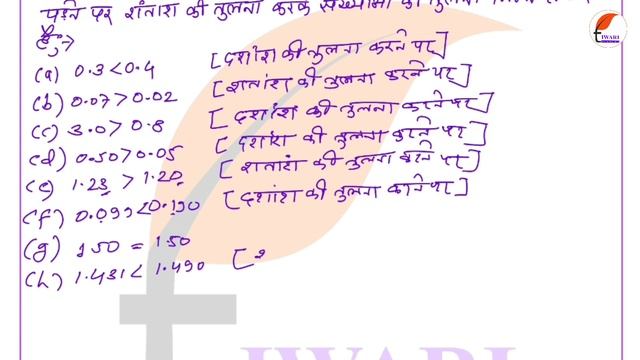 पड़ने पर शतांश की तुलना करके संख्याओं की तुलना
है;→
(a) 0.3<0.4 [दशांश की तुलना करने पर]
(b) 0.07>0.02 [शतांश की तुलना करने पर]
(c) 3.0>0.8 [दशांश की तुलना करने पर]
(d) 0.50>0.05 [दशांश की तुलना करने पर]
(e) 1.23 > 1.20 [शतांश की तुलना करने पर]
(f) 0.099<0.190 [दशांश की तुलना करने पर]
(g) 1.50 = 1.50
(h) 1.431< 1.490 [
IWARI
IWARI